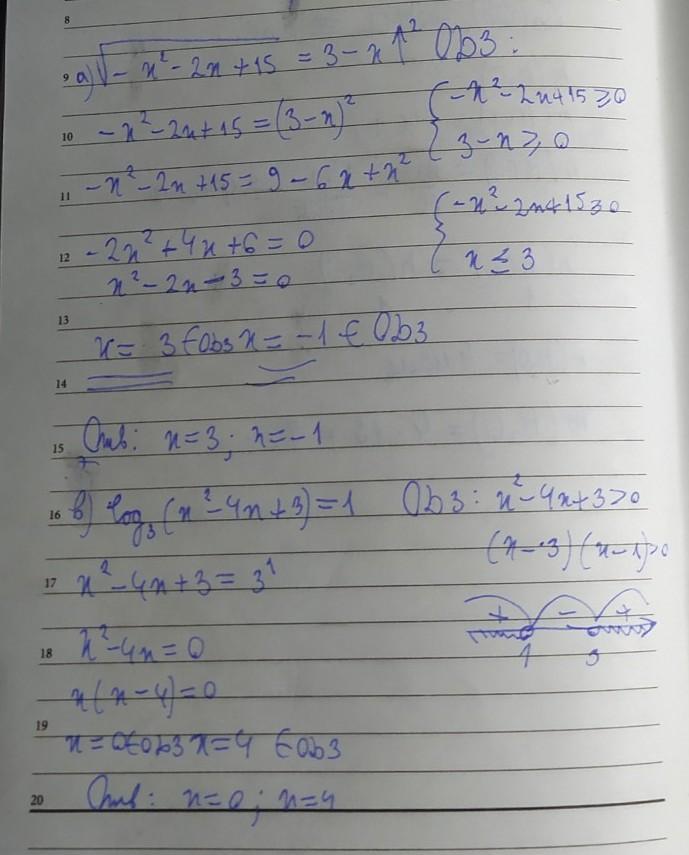 8
9 a) √-x²-2x+15 = 3-x ↑² Обз:
{-x²-2x+15≥0
10 -x²-2x+15=(3-x)²
3-x≥0
11 -x²-2x+15=9-6x+x²
{-x²-2x+15≥0
12 -2x²+4x+6=0
x≤3
x²-2x-3=0
13
x=3∈Обз x=-1∈Обз
14
15 Отв: x=3; x=-1
16 в) log₃(x²-4x+3)=1 Обз: x²-4x+3>0
(x-3)(x-1)>0
17 x²-4x+3=3¹
+ - +
18 x²-4x=0
1 3
x(x-4)=0
19
x=0∈Обз x=4∈Обз
20 Отв: x=0; x=4